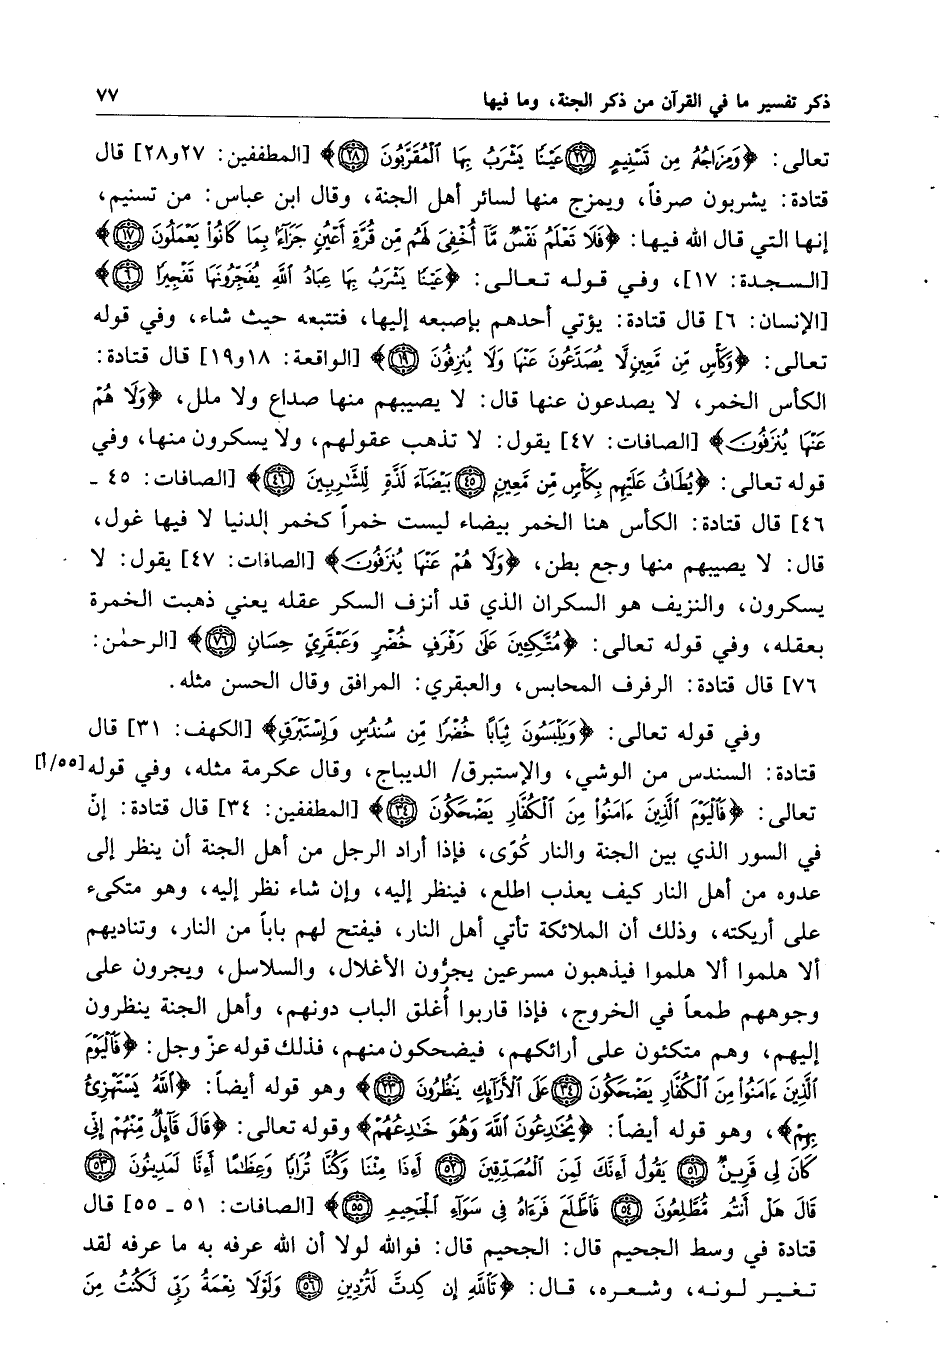 ذكر تفسير ما في القرآن من ذكر الجنة، وما فيها ٧٧
تعالى: ﴿وَمِزَاجُهُ مِن تَسْنِيمٍ ﴿٢٧﴾ عَيْنًا يَشْرَبُ بِهَا الْمُقَرَّبُونَ ﴿٢٨﴾﴾ [المطففين: ٢٧و٢٨] قال
قتادة: يشربون صرفاً، ويمزج منها لسائر أهل الجنة، وقال ابن عباس: من تسنيم،
إنها التي قال الله فيها: ﴿فَلَا تَعْلَمُ نَفْسٌ مَّا أُخْفِيَ لَهُم مِّن قُرَّةِ أَعْيُنٍ جَزَاءً بِمَا كَانُوا يَعْمَلُونَ ﴿١٧﴾﴾
[السجدة: ١٧]، وفي قوله تعالى: ﴿عَيْنًا يَشْرَبُ بِهَا عِبَادُ اللَّهِ يُفَجِّرُونَهَا تَفْجِيرًا ﴿٦﴾﴾
[الإنسان: ٦] قال قتادة: يؤتي أحدهم بإصبعه إليها، فتتبعه حيث شاء، وفي قوله
تعالى: ﴿وَكَأْسٍ مِّن مَّعِينٍ لَّا يُصَدَّعُونَ عَنْهَا وَلَا يُنزِفُونَ ﴿١٩﴾﴾ [الواقعة: ١٨و١٩] قال قتادة:
الكأس الخمر، لا يصدعون عنها قال: لا يصيبهم منها صداع ولا ملل، ﴿وَلَا هُمْ
عَنْهَا يُنزَفُونَ﴾ [الصافات: ٤٧] يقول: لا تذهب عقولهم، ولا يسكرون منها، وفي
قوله تعالى: ﴿يُطَافُ عَلَيْهِم بِكَأْسٍ مِّن مَّعِينٍ ﴿٤٥﴾ بَيْضَاءَ لَذَّةٍ لِّلشَّارِبِينَ ﴿٤٦﴾﴾ [الصافات: ٤٥ ـ
٤٦] قال قتادة: الكأس هنا الخمر بيضاء ليست خمراً كخمر الدنيا لا فيها غول،
قال: لا يصيبهم منها وجع بطن، ﴿وَلَا هُمْ عَنْهَا يُنزَفُونَ﴾ [الصافات: ٤٧] يقول: لا
يسكرون، والنزيف هو السكران الذي قد أنزف السكر عقله يعني ذهبت الخمرة
بعقله، وفي قوله تعالى: ﴿مُتَّكِئِينَ عَلَى رَفْرَفٍ خُضْرٍ وَعَبْقَرِيٍّ حِسَانٍ ﴿٧٦﴾﴾ [الرحمٰن:
٧٦] قال قتادة: الرفرف المحابس، والعبقري: المرافق وقال الحسن مثله.
وفي قوله تعالى: ﴿وَيَلْبَسُونَ ثِيَابًا خُضْرًا مِّن سُندُسٍ وَإِسْتَبْرَقٍ﴾ [الكهف: ٣١] قال
قتادة: السندس من الوشي، والإستبرق/ الديباج، وقال عكرمة مثله، وفي قوله [٥٥/أ]
تعالى: ﴿فَالْيَوْمَ الَّذِينَ ءَامَنُوا مِنَ الْكُفَّارِ يَضْحَكُونَ ﴿٣٤﴾﴾ [المطففين: ٣٤] قال قتادة: إنّ
في السور الذي بين الجنة والنار كُوّى، فإذا أراد الرجل من أهل الجنة أن ينظر إلى
عدوه من أهل النار كيف يعذب اطلع، فينظر إليه، وإن شاء نظر إليه، وهو متكىء
على أريكته، وذلك أن الملائكة تأتي أهل النار، فيفتح لهم باباً من النار، وتناديهم
ألا هلموا ألا هلموا فيذهبون مسرعين يجرُّون الأغلال، والسلاسل، ويجرون على
وجوههم طمعاً في الخروج، فإذا قاربوا أُغلق الباب دونهم، وأهل الجنة ينظرون
إليهم، وهم متكئون على أرائكهم، فيضحكون منهم، فذلك قوله عزّ وجل: ﴿فَالْيَوْمَ
الَّذِينَ ءَامَنُوا مِنَ الْكُفَّارِ يَضْحَكُونَ ﴿٣٤﴾ عَلَى الْأَرَائِكِ يَنظُرُونَ ﴿٢٣﴾﴾ وهو قوله أيضاً: ﴿اللَّهُ يَسْتَهْزِئُ
بِهِمْ﴾، وهو قوله أيضاً: ﴿يُخَادِعُونَ اللَّهَ وَهُوَ خَادِعُهُمْ﴾ وقوله تعالى: ﴿قَالَ قَائِلٌ مِّنْهُمْ إِنِّي
كَانَ لِي قَرِينٌ ﴿٥١﴾ يَقُولُ أَءِنَّكَ لَمِنَ الْمُصَدِّقِينَ ﴿٥٢﴾ أَءِذَا مِتْنَا وَكُنَّا تُرَابًا وَعِظَامًا أَءِنَّا لَمَدِينُونَ ﴿٥٣﴾
قَالَ هَلْ أَنتُم مُّطَّلِعُونَ ﴿٥٤﴾ فَاطَّلَعَ فَرَءَاهُ فِي سَوَاءِ الْجَحِيمِ ﴿٥٥﴾﴾ [الصافات: ٥١ ـ ٥٥] قال
قتادة في وسط الجحيم قال: الجحيم قال: فوالله لولا أن الله عرفه به ما عرفه لقد
تغير لونه، وشعره، قال: ﴿تَاللَّهِ إِن كِدتَّ لَتُرْدِينِ ﴿٥٦﴾ وَلَوْلَا نِعْمَةُ رَبِّي لَكُنتُ مِنَ